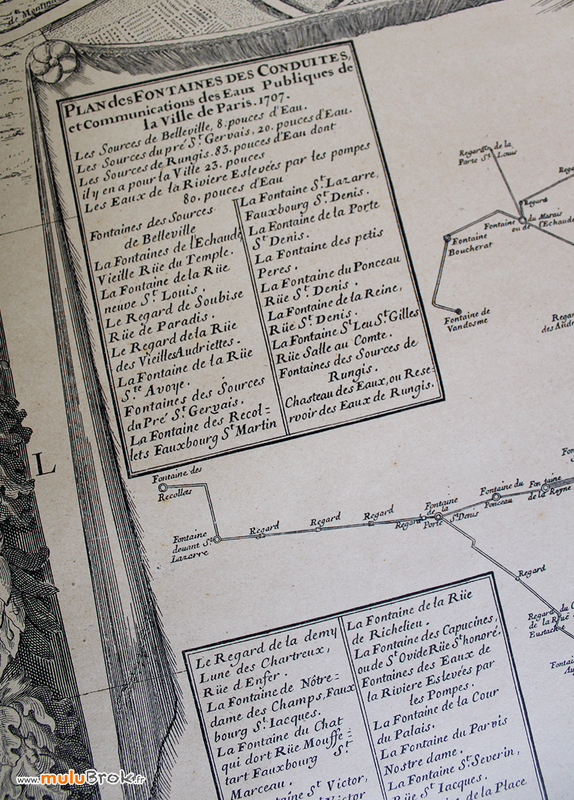 de Montmar
PLAN des FONTAINES DES CONDUITES,
et Communications des Eaux Publiques de
la Ville de Paris. 1707.
Les Sources de Belleville, 8. pouces d'Eau.
Les Sources du pré St. Gervais, 20. pouces d'Eau.
Les Sources de Rungis. 83. pouces d'Eau dont
il y en a pour la Ville 23. pouces
Les Eaux de la Riviere Eslevées par les pompes
80. pouces d'Eau
Fontaines des Sources
de Belleville
La Fontaines de l'Echaudé
Vieille Rüe du Temple.
La Fontaine de la Rüe
neuve St. Louis.
Le Regard de Soubise
Rüe de Paradis.
Le Regard de la Rüe
des Vieilles Audriettes.
La Fontaine de la Rüe
Ste Avoye.
Fontaines des Sources
du Pré St. Gervais.
La Fontaine des Recol=
lets Fauxbourg St Martin
La Fontaine St. Lazarre,
Fauxbourg St Denis.
La Fontaine de la Porte
St Denis.
La Fontaine des petis
Peres.
La Fontaine du Ponceau
Rüe St Denis.
La Fontaine de la Reine,
Rüe St Denis.
La Fontaine St Leu St Gilles
Rüe Salle au Comte.
Fontaines des Sources de
Rungis.
Chasteau des Eaux, ou Rese=
rvoir des Eaux de Rungis.
Regard de la
Porte St Louis
Rega
Regard
Fontaine du Marais
ou de l'Echaude
Fontaine
Boucherat
Fontaine de
Vandosme
Regar
des Audri
L
Fontaine des
Recolles
Fontaine
deuant St
Lazarre
Regard
Regard
Regard
Regard
Fontaine
de la
Porte St Denis
Fontaine du
Ponceau
Fontaine
de la Reyne
Fon
Regard
Regard du C
de la Rüe
Eustache
Fontai
Au
Le Regard de la demy
Lune des Chartreux,
Rüe d'Enfer.
La Fontaine de Nôtre=
dame des Champs, Faux
bourg St Jacques.
La Fontaine du Chat
qui dort Rüe Mouffe=
tart Fauxbourg St
Marceau.
Fontaine St Victor,
Victor
La Fontaine de la Rüe
de Richelieu.
La Fontaine des Capucines,
ou de St Ovide Rüe St honoré.
Fontaines des Eaux de
la Riviere Eslevées par
les Pompes.
La Fontaine de la Cour
du Palais.
La Fontaine du Parvis
Nostre dame.
La Fontaine St Severin,
Rüe St Jacques.
de la Place
www.muluBrok.fr